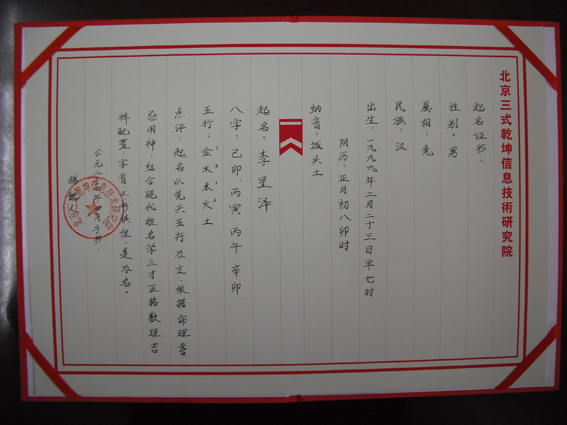 北京三式乾坤信息技術研究院
起名证书:
性别: 男
属相: 兔
民族: 汉
出生: 一九九九年二月二十三日早七时
阴历: 正月初八卯时
纳音: 城头土
起名: 李昱泽
八字: 己卯 丙寅 丙午 辛卯
五行: 金木水火土
点评: 起名以先天五行为主, 依据命理喜
忌用神, 结合现代姓名学三才五格数理吉
祥配置, 字音
是为名。
公元二